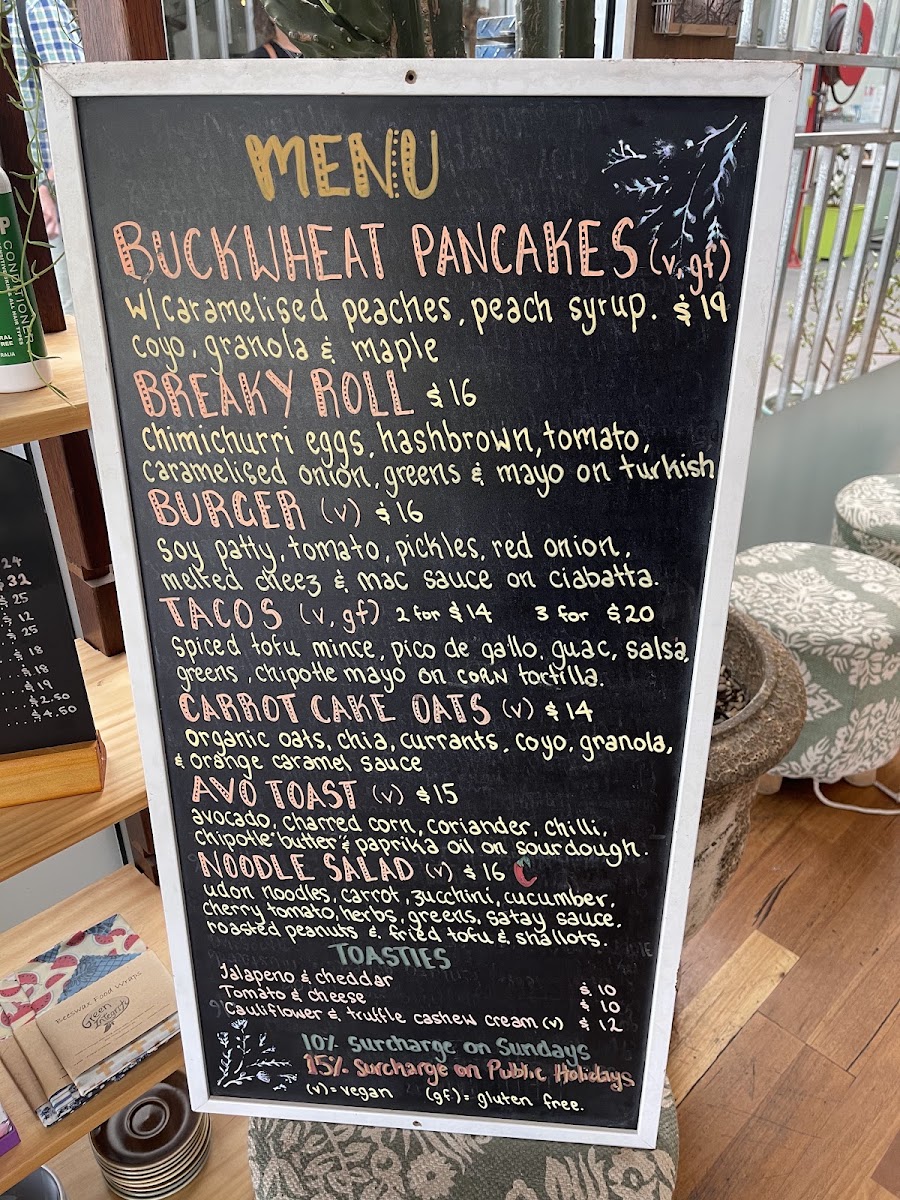 MENU
BUCKWHEAT PANCAKES (v, gf)
w/caramelised peaches, peach syrup. $19
coyo, granola & maple
BREAKY ROLL $16
chimichurri eggs, hashbrown, tomato,
caramelised onion, greens & mayo on turkish
BURGER (v) $16
soy patty, tomato, pickles, red onion,
melted cheez & mac sauce on ciabatta.
TACOS (v, gf) 2 for $14 3 for $20
spiced tofu mince, pico de gallo, guac, salsa,
greens, chipotle mayo on CORN tortilla.
CARROT CAKE OATS (v) $14
organic oats, chia, currants, coyo, granola,
& orange caramel sauce
AVO TOAST (v) $15
avocado, charred corn, coriander, chilli,
chipotle butter & paprika oil on sourdough.
NOODLE SALAD (v) $16
udon noodles, carrot, zucchini, cucumber,
cherry tomato, herbs, greens, satay sauce,
roasted peanuts & fried tofu & shallots.
TOASTIES
Jalapeno & cheddar $10
Tomato & cheese $10
Cauliflower & truffle cashew cream (v) $12
10% surcharge on Sundays
15% surcharge on Public Holidays
(v) = vegan (gf) = gluten free.
P
CONDITIONER
ALL HAIR TYPES
24
$32
$25
$12
$25
$18
$18
$19
$2.50
$4.50
Beeswax Food Wraps
Green